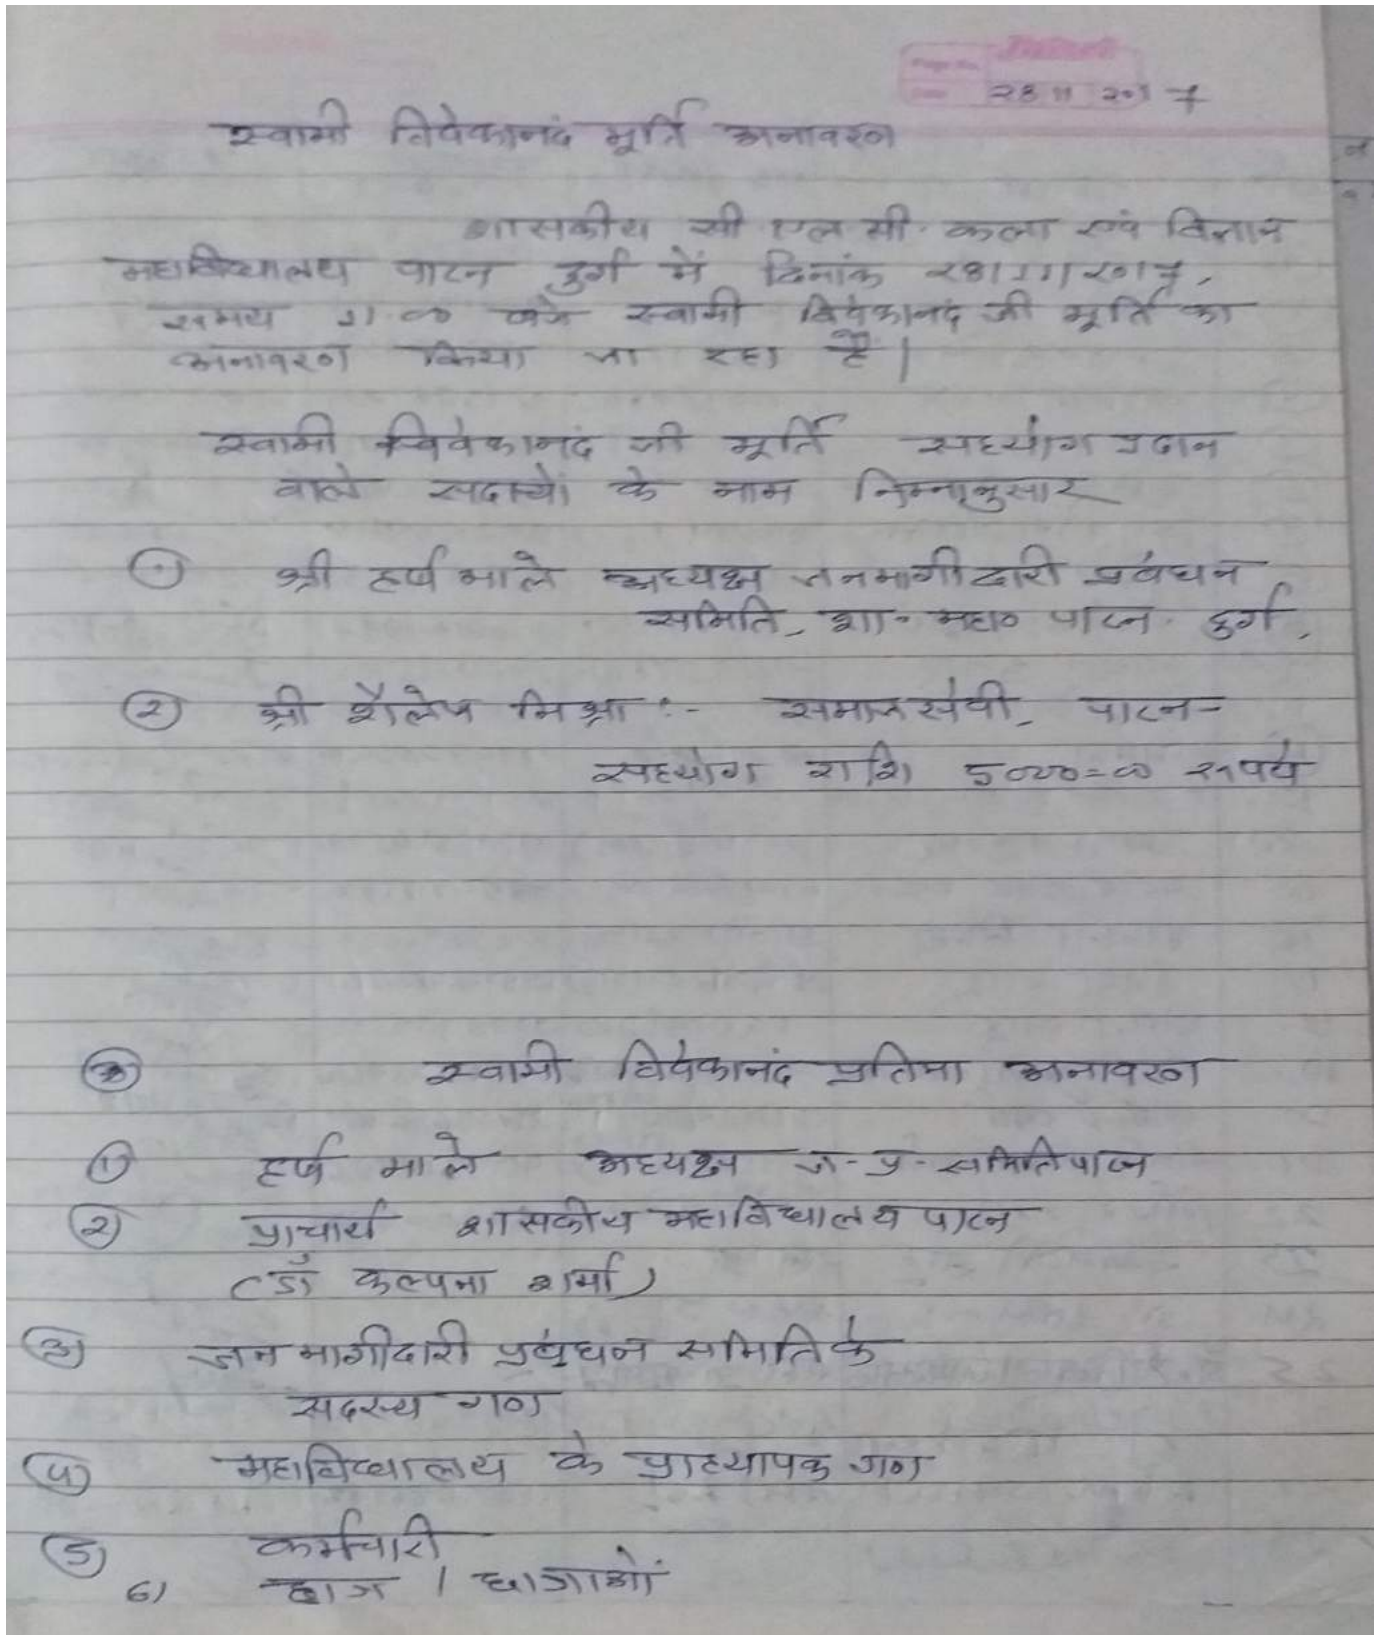 28 11 2017
स्वामी विवेकानंद मूर्ति अनावरण
शासकीय सी एल सी. कला एवं विज्ञान
महाविद्यालय पाटन दुर्ग में दिनांक 28/11/2017,
समय 11.00 बजे स्वामी विवेकानंद जी मूर्ति का
अनावरण किया जा रहा है।
स्वामी विवेकानंद जी मूर्ति सहयोग प्रदान
वाले सदस्यों के नाम निम्नानुसार
① श्री हर्ष भाले अध्यक्ष जनभागीदारी प्रबंधन
समिति, शा. महा० पाटन दुर्ग,
② श्री शैलेष मिश्रा :- समाजसेवी, पाटन-
सहयोग राशि 5000=00 रूपये
स्वामी विवेकानंद प्रतिमा अनावरण
① हर्ष भाले अध्यक्ष ज-प्र-समिति पाटन
② प्राचार्य शासकीय महाविद्यालय पाटन
(डॉ कल्पना शर्मा)
③ जन भागीदारी प्रबंधन समिति के
सदस्य गण
④ महाविद्यालय के प्राध्यापक गण
⑤ कर्मचारी
6) छात्र / छात्राओं